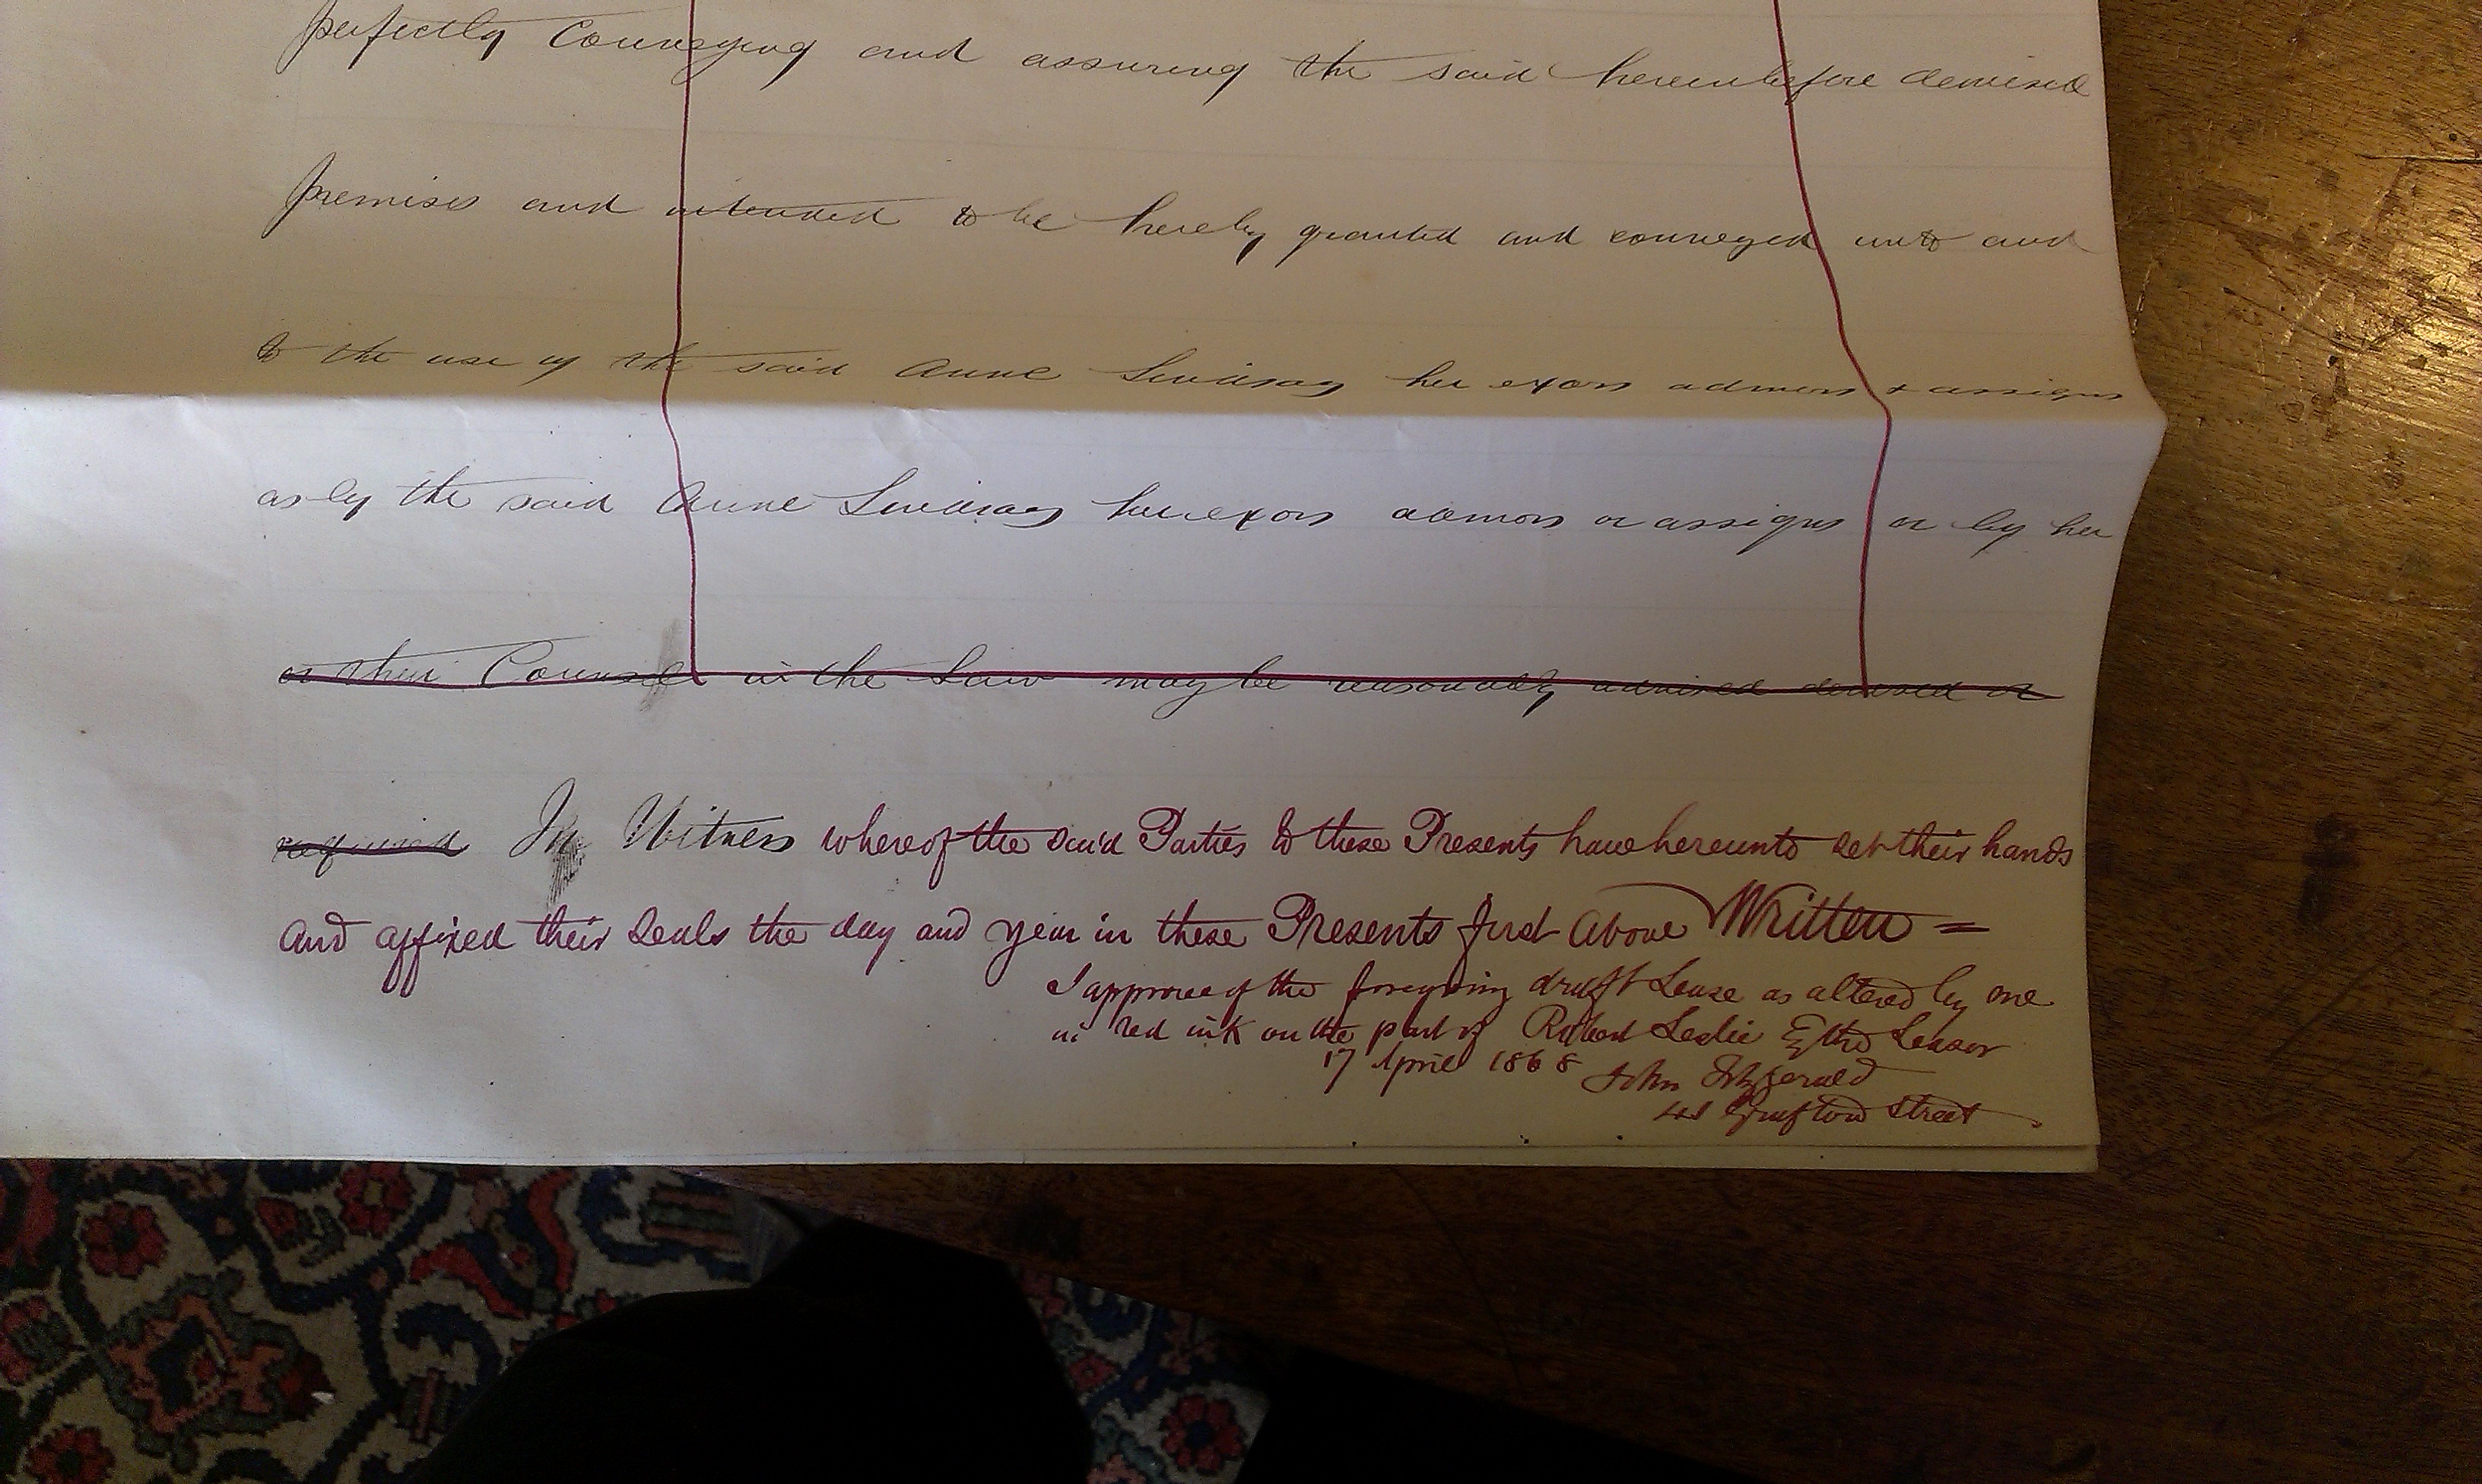 perfectly Conveying and assuring the said hereinbefore demised
premises and intended to be hereby granted and conveyed unto and
to the use of the said Anne Lindsay her exors admors & assigns
as by the said Anne Lindsay her exors admors or assigns or by her
or their Counsel in the Law may be reasonably advised devised or
required In Witness whereof the said Parties to these Presents have hereunto set their hands
and affixed their Seals the day and year in these Presents first above Written =
I approve of the foregoing draft Lease as altered by me
in red ink on the part of Robert Leslie Esq the Lessor
17 April 1868 John Fitzgerald
Grafton Street